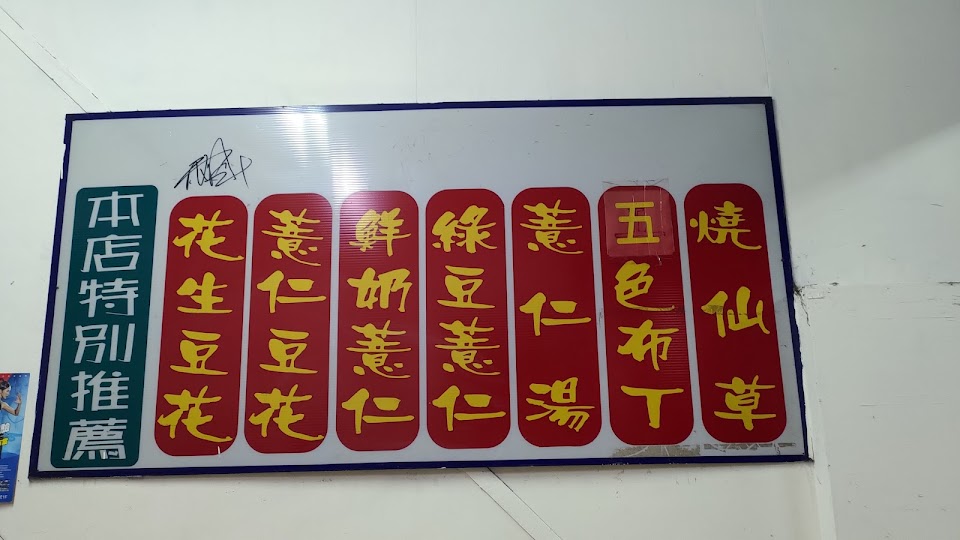 本店特別推薦
花生豆花
薏仁豆花
鮮奶薏仁
綠豆薏仁
薏仁湯
五色布丁
燒仙草